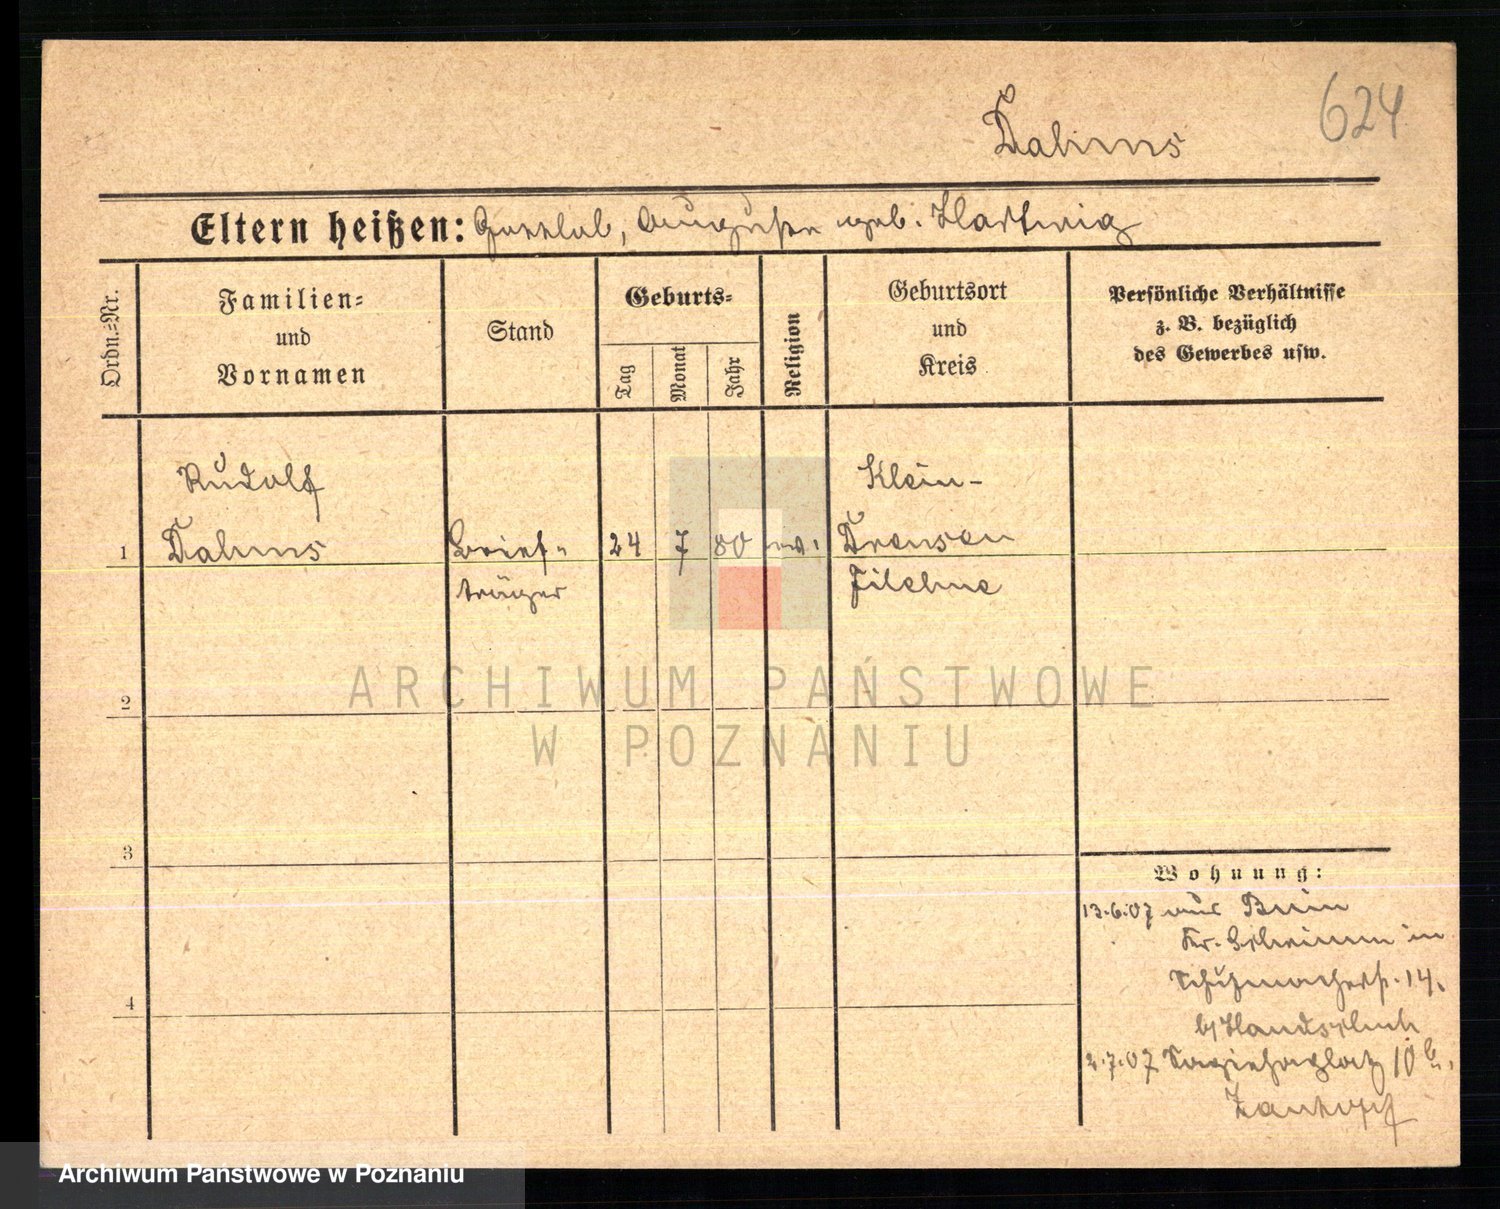 624
Dahms
Eltern heißen: Gottlob, Auguste geb. Hartwig
Ordn.=Nr.
Familien=
und
Vornamen
Stand
Geburts=
Tag
Monat
Jahr
Religion
Geburtsort
und
Kreis
Persönliche Verhältnisse
z. B. bezüglich
des Gewerbes usw.
Rudolf
Klein-
1 Dahms Brief- 24 7 80 ev. Drensen
träger Filehne
2
3
4
Wohnung:
13.6.07 aus Bnin
Kr. Schrimm in
Schuhmacherst. 14.
b/
2.7.07 Sapiehaplatz 10 b.
ARCHIWUM PAŃSTWOWE
W POZNANIU
Archiwum Państwowe w Poznaniu